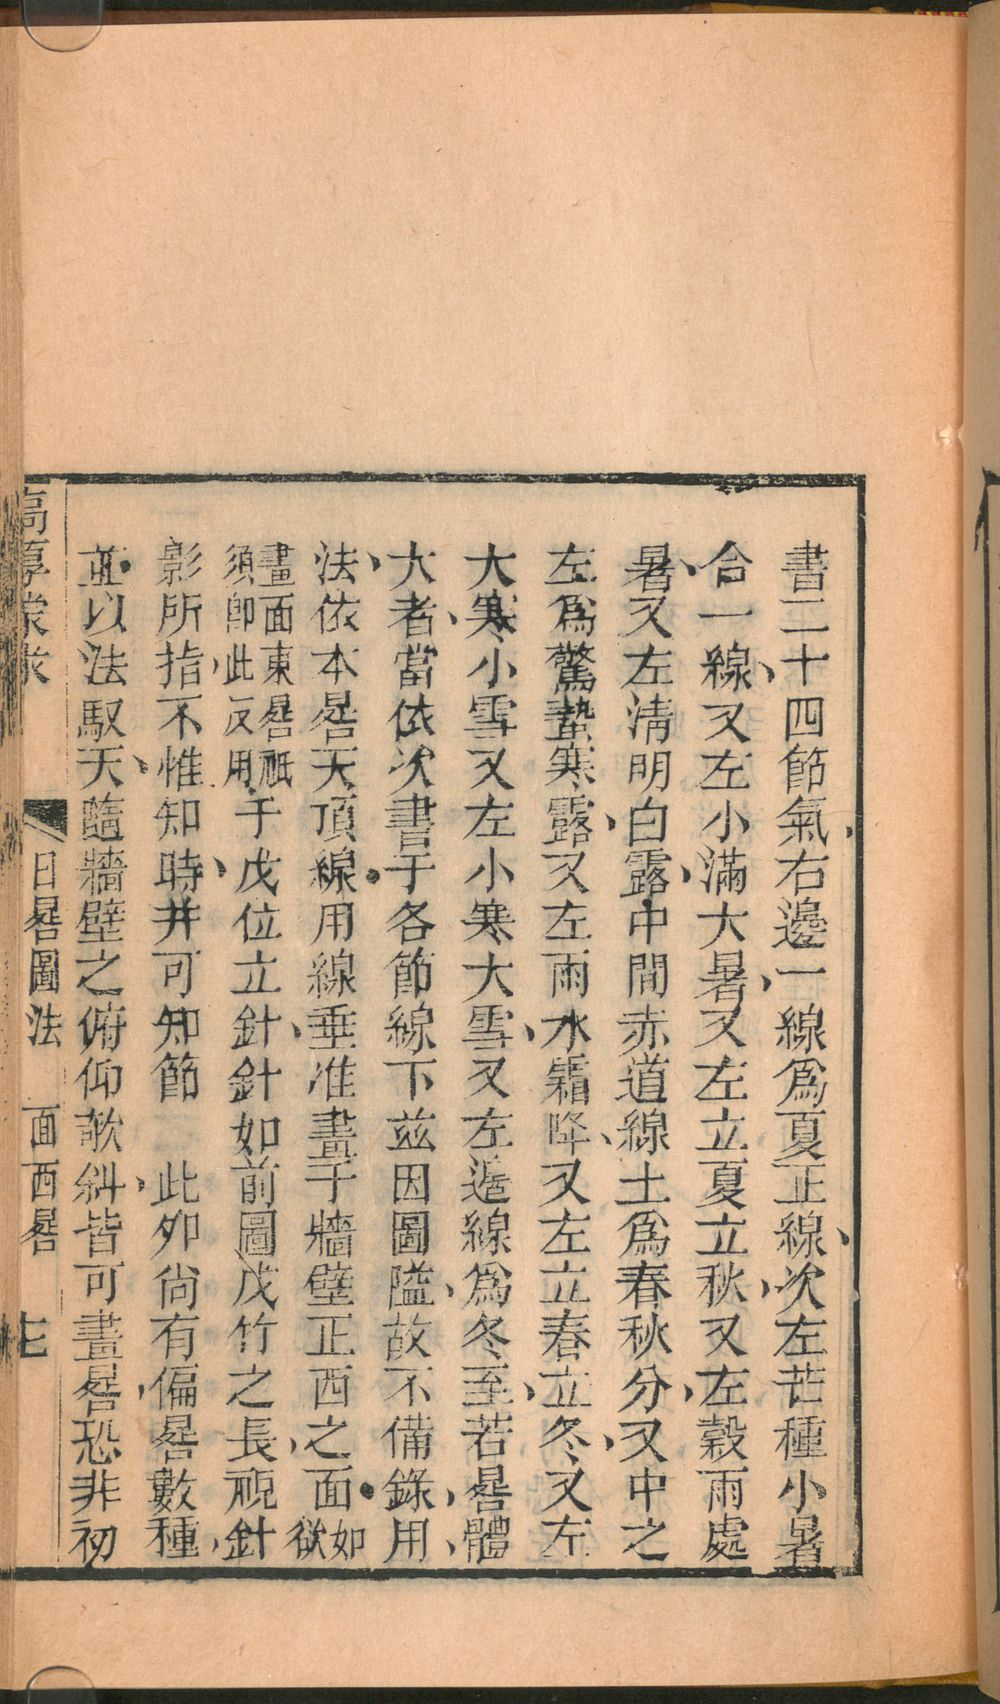 書二十四節氣右邊一線爲夏正線次左芒種小暑
合一線又左小滿大暑又左立夏立秋又左穀雨處
暑又左清明白露中間赤道線土爲春秋分又中之
左爲驚蟄寒露又左雨水霜降又左立春立冬又左
大寒小雪又左小寒大雪又左遠線爲冬至若晷體
大者當依次書于各節線下茲因圖隘故不備錄用
法依本晷天頂線用線垂准畫于牆壁正西之面如欲
畫面東晷祇須即此反用于戊位立針針如前圖戊竹之長視針
影所指不惟知時并可知節　此外尚有偏晷數種
並以法馭天隨牆壁之俯仰欹斜皆可畫晷恐非初
高厚蒙求
日晷圖法　面西晷
七